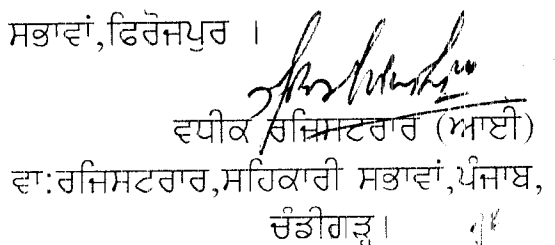 ਸਭਾਵਾਂ,ਫਿਰੋਜਪੁਰ ।
ਵਧੀਕ ਰਜਿਸਟਰਾਰ (ਆਈ)
ਵਾ:ਰਜਿਸਟਰਾਰ,ਸਹਿਕਾਰੀ ਸਭਾਵਾਂ,ਪੰਜਾਬ,
ਚੰਡੀਗੜ੍ਹ।